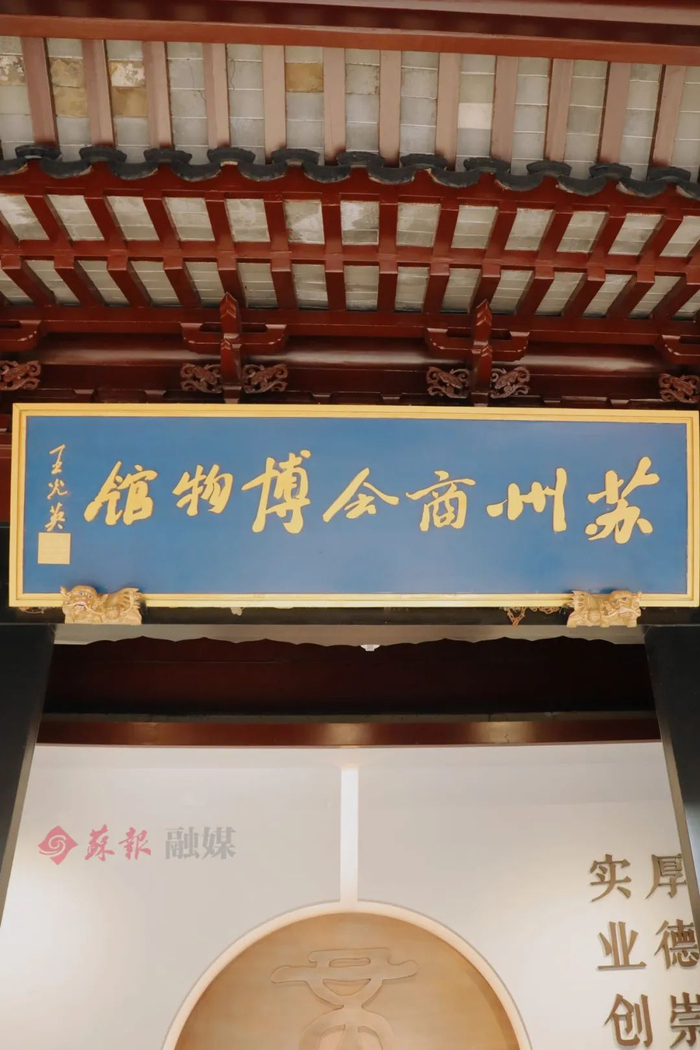 苏州商会博物馆
王光英
蘇報 融媒
厚德崇
实业创